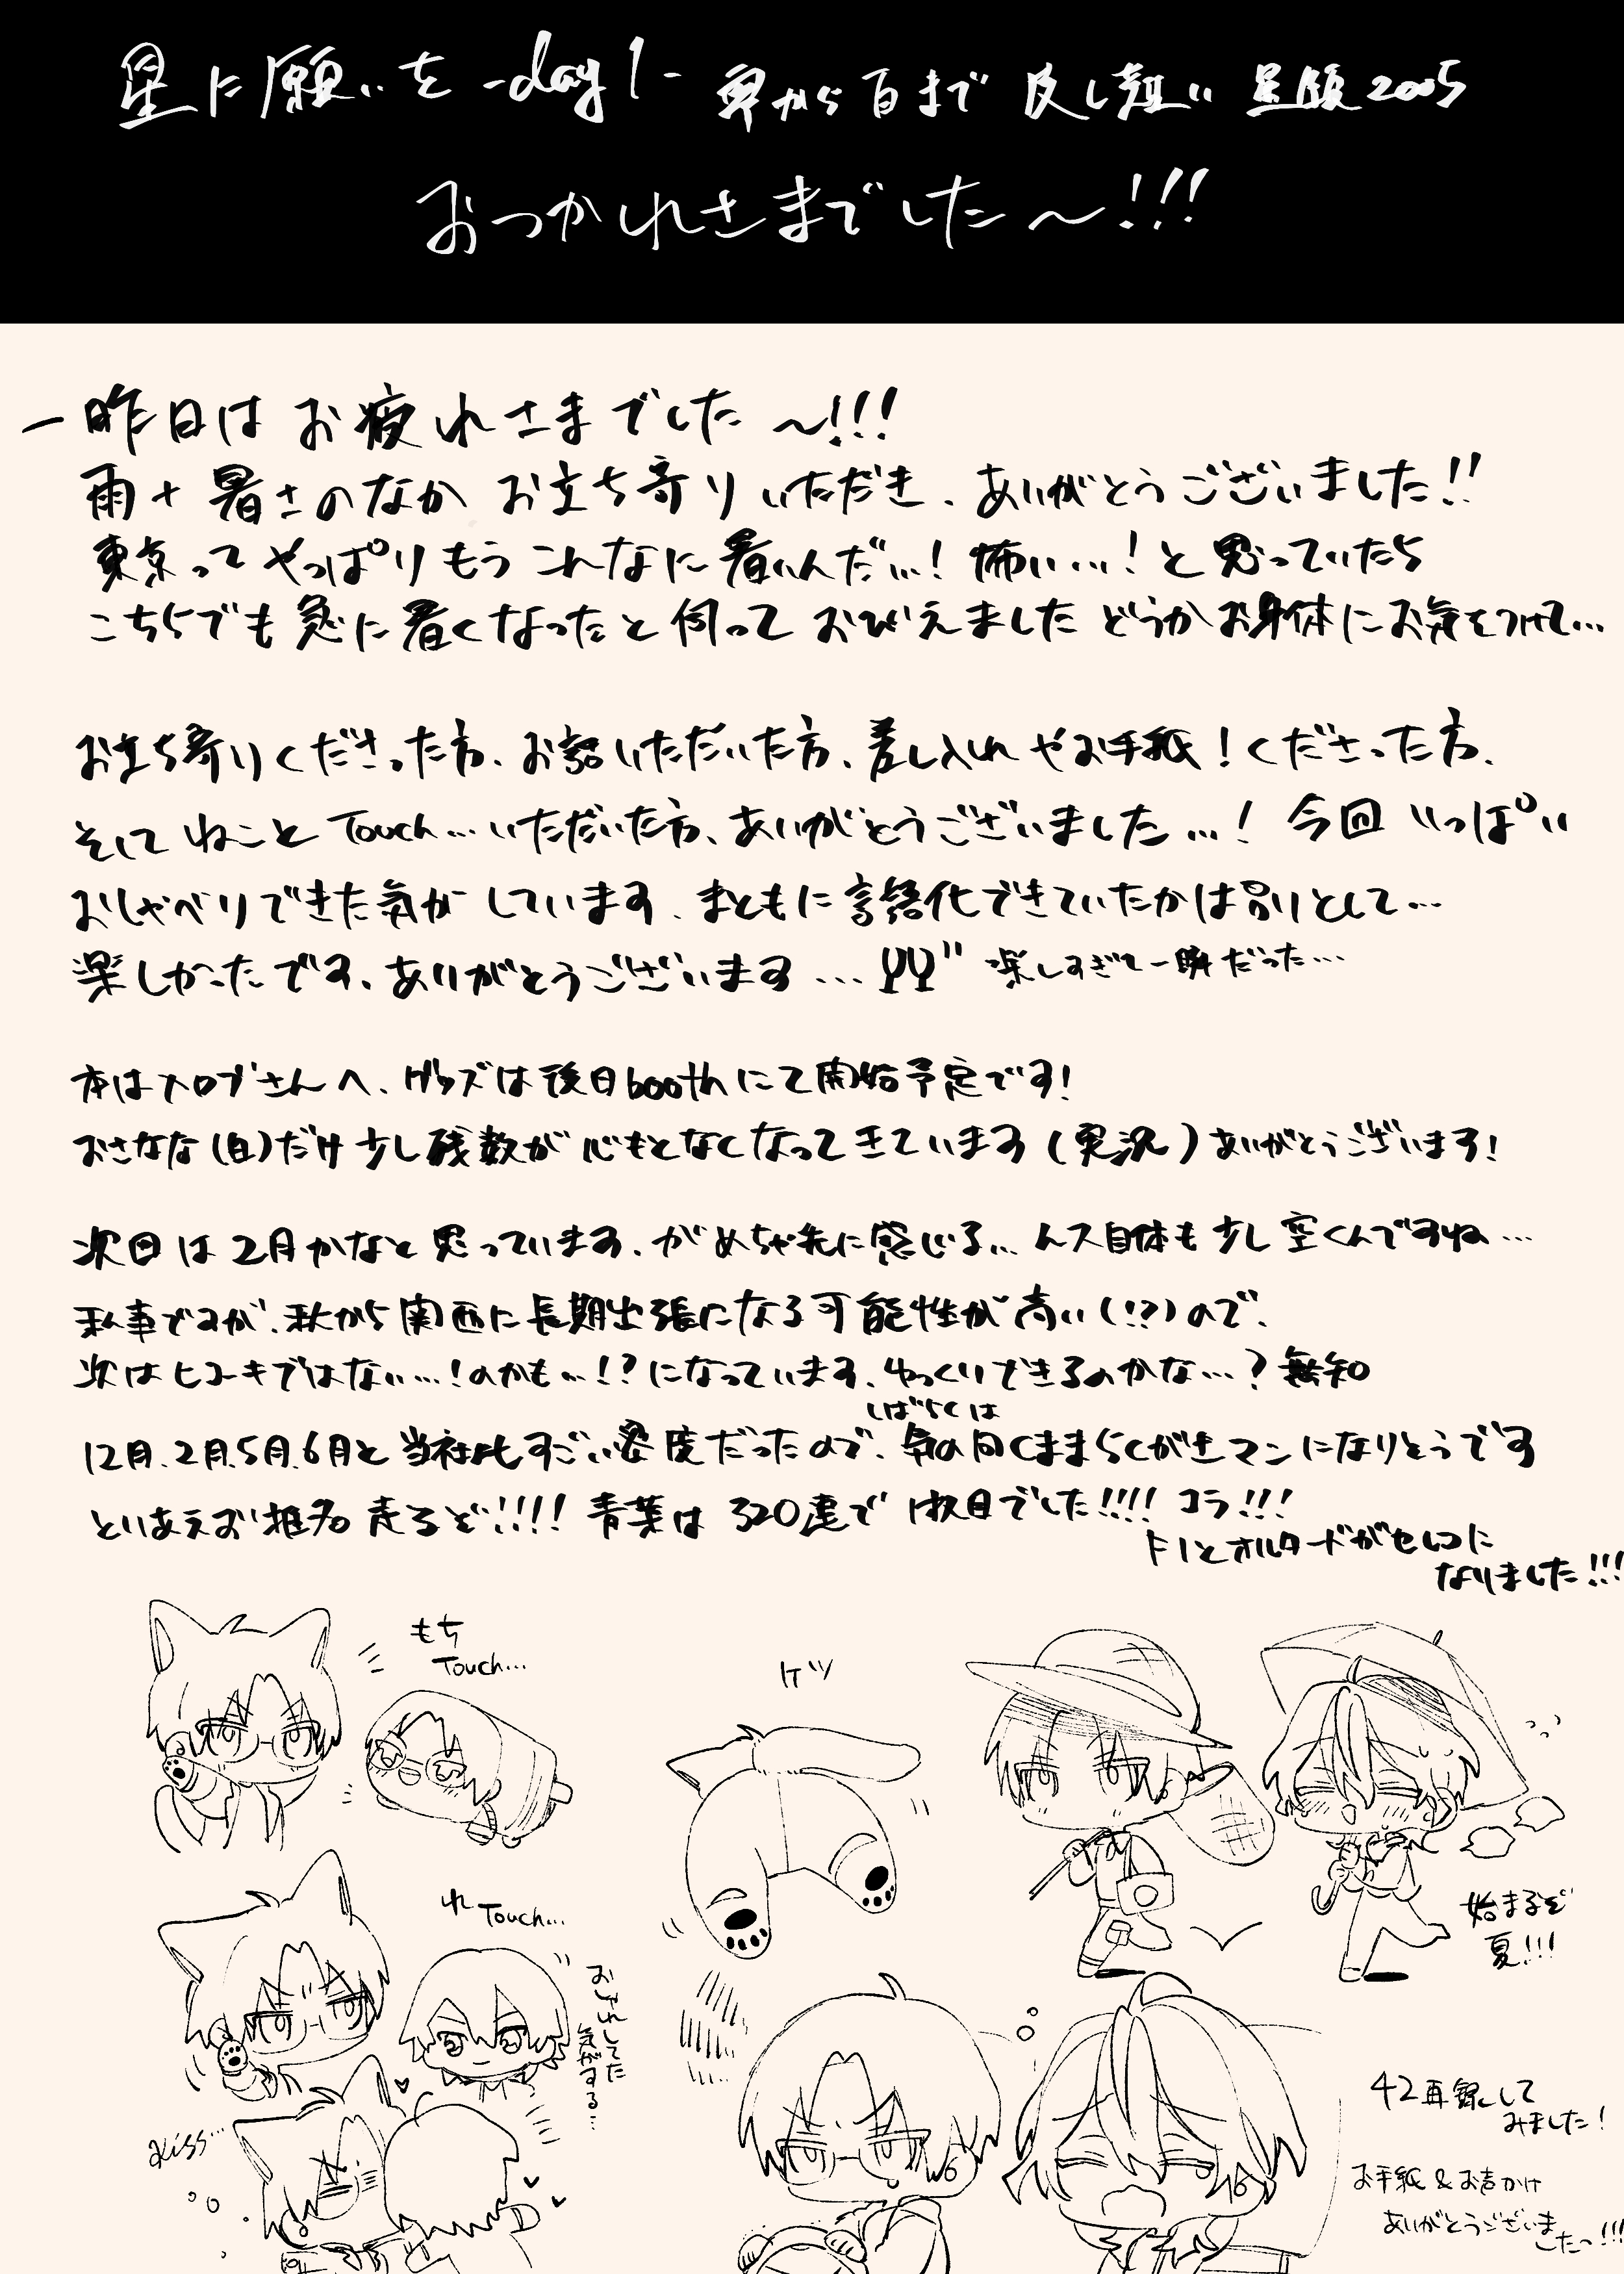 星に願いを -day1- 零から百まで 反し短い 星願2005
おつかれさまでした〜!!!
一昨日はお疲れさまでした〜!!!
雨+暑さのなか お立ち寄りいただき、ありがとうございました!!
東京ってやっぱりもうこんなに暑いんだ…! 怖い…! と思っていたら
こちらでも急に暑くなったと伺っておびえました どうかお身体にお気をつけて…
お立ち寄りくださった方、お話いただいた方、差し入れやお手紙!くださった方、
そして ねことTouch…いただいた方、ありがとうございました…! 今回いっぱい
おしゃべりできた気がしています、まともに言語化できていたかは別として…
楽しかったです、ありがとうございます… 楽しすぎて一瞬だった…
本はメロブさんへ、グッズは後日boothにて開始予定です!
おさなな(白)だけ少し残数が心もとなくなってきています(実況)ありがとうございます!
次回は2月かなと思っています、がめちゃ先に感じる… ンス自体も少し空くんですね…
私事ですが、秋から関西に長期出張になる可能性が高い(!?)ので、
次はヒコーキではない…!のかも…!?になっています、ゆっくりできるのかな…? 無知
12月、2月、5月、6月と当社比すごい密度だったので、しばらくは気の向くままらくがきマンになりそうです
とはあえお推名 走るぞ!!!! 青葉は320連で1枚目でした!!!! コラ!!!
ドIとオルタードがセレコに
なりました!!!
もち
Touch…
ケツ
れ Touch…
おしゃれしてた
気がする…
始まるぞ
夏!!!
Kiss…
42再録して
みました!
お手紙&お声かけ
ありがとうございま
したっ!!!